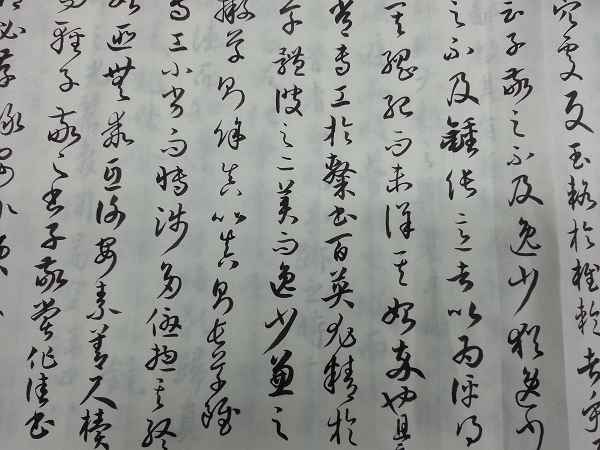 穴處反玉輅於椎輪者乎
云子敬之不及逸少猶逸少
之不及鍾張意者以為評得
其綱紀而未詳其始卒也且
常專工於隸書百英尤精於
草體彼之二美而逸少兼之
擬草則餘真比真則長草雖
專工小劣而博涉多優摠其終
始匪無乖互謝安素善尺牘
而輕子敬之書子敬嘗作佳書
必存錄安